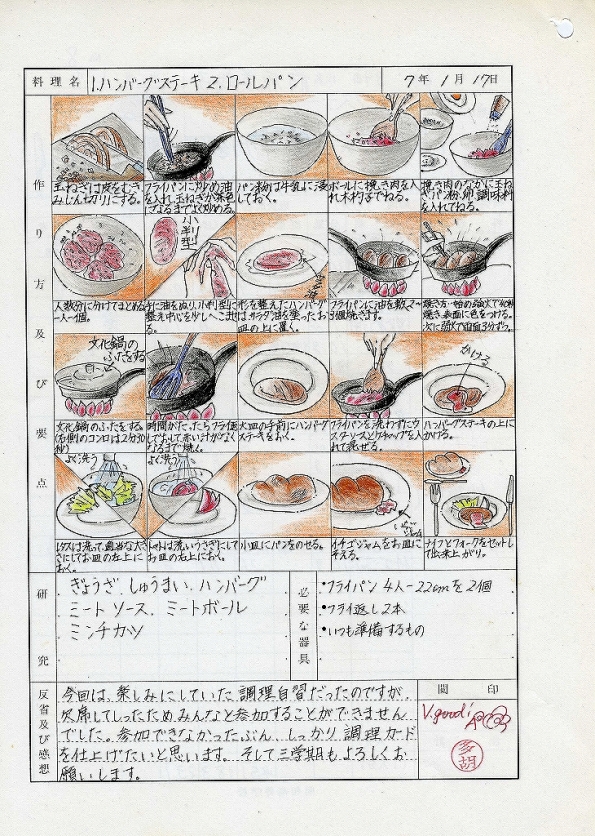 料理名 1.ハンバーグステーキ 2.ロールパン 7年1月17日
作り方及び要点
玉ねぎは皮をむき
みじん切りにする。
フライパンに炒め油
を入れ玉ねぎが茶色
になるまでよく炒める。
パン粉は牛乳に浸
しておく。
ボールに挽き肉を入
れ木杓子でねる。
挽き肉のなかに玉ね
ぎパン粉、卵、調味料
を入れてねる。
小判型
人数分に分けてまとめる
一人一個。
手に油をぬり、小判型に
整え中心を少しへこませ
る。
形を整えたハンバーグ
はサラダ油を塗ったお
皿の上に置く。
フライパンに油を敷2〜
3個焼きます。
文化鍋の
ふたをする
かける
文化鍋のふたをする。
時間がたったらフライ返
しでおして赤い汁がでなく
なるまで焼く。
大皿の手前にハンバーグ
ステーキをおく。
フライパンを洗わずにウ
スターソースとケチャップを入
れて混ぜる。
ハンバーグステーキの上に
かける。
よく洗う
よく洗う
レタスは洗って適当な大き
さにしてお皿の左上に
おく。
トマトは洗いうさぎにして
お皿の右上におく。
小皿にパンをのせる。
イチゴジャムをお皿に
そえる。
ナイフとフォークをセットし
て出来上がり。
研究
ぎょうざ、しゅうまい、ハンバーグ
ミートソース、ミートボール
ミンチカツ
必要な器具
•フライパン 4人-22cmを2個
•フライ返し2本
•いつも準備するもの
反省及び感想
今回は、楽しみにしていた調理自習だったのですが、
欠席してしったためみんなと参加することができません
でした。参加できなかったぶん、しっかり調理カード
を仕上げたいと思います。そして三学期もよろしくお
願いします。
閲印
V.good!
多胡